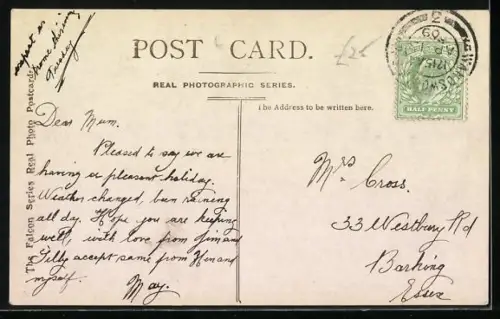 expect us
home this
Tuesday
POST CARD.
£25
REAL PHOTOGRAPHIC SERIES.
The Address to be written here.
The Falcon Series Real Photo Postcards
Dear Mum.
Pleased to say we are
having a pleasant holiday.
Weather changed, been raining
all day. Hope you are keeping
well, with love from Jim and
accept same from
myself.
May.
Mrs Cross.
33 Westbury Rd
Barking
Essex
AP
09
2
HALF PENNY